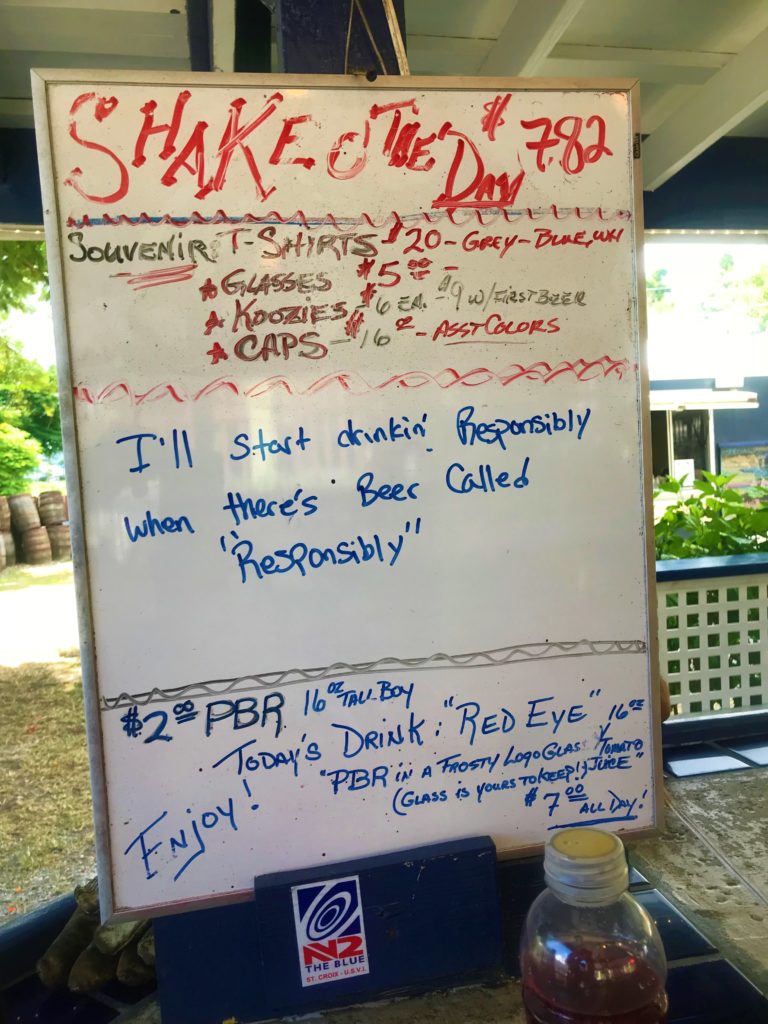 SHAKE O THE DAY $782
SOUVENIR: T-SHIRTS $20 - GREY - BLUE, WH
★ GLASSES $5.00 -
★ KOOZIES - $6 EA. - $9 W/FIRST BEER
★ CAPS - $16 - ASST COLORS
I'll start drinkin' Responsibly
when there's Beer Called
"Responsibly"
$2.00 PBR 16oz TALL BOY
TODAY'S DRINK: "RED EYE" 16oz
"PBR IN A FROSTY LOGO GLASS Y/TOMATO
(GLASS IS YOURS TO KEEP!) JUICE"
ENJOY! $7.00 ALL DAY!
N2
THE BLUE
ST. CROIX - U.S.V.I.